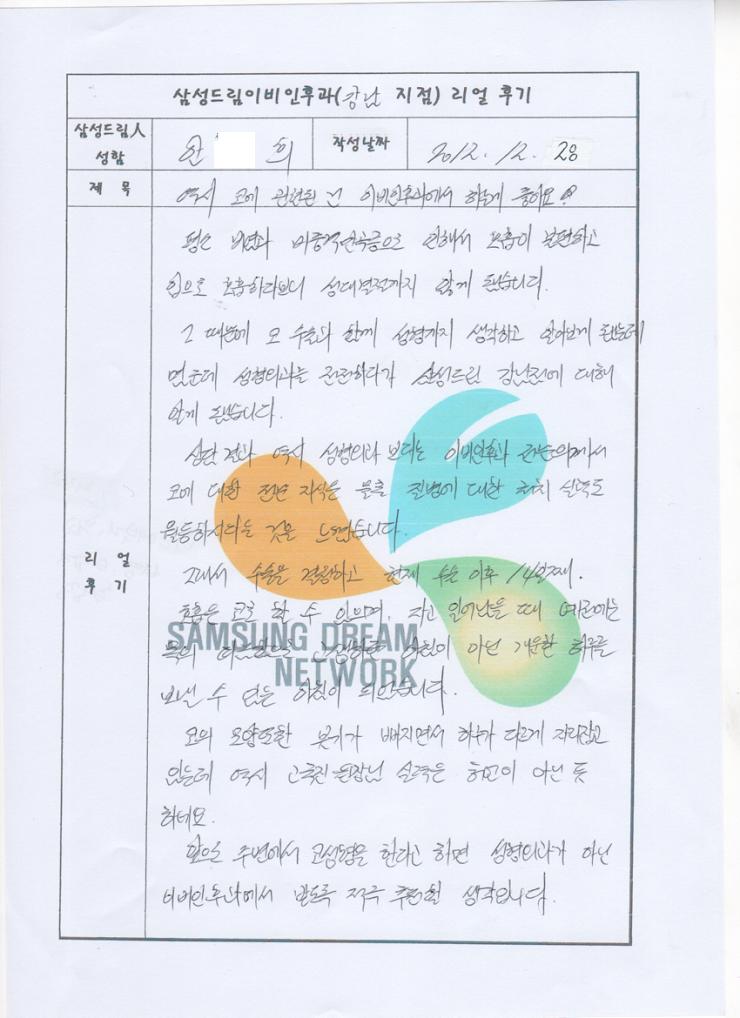 삼성드림이비인후과(강남 지점) 리얼 후기
삼성드림人 성함
희
작성날짜
2012. 12. 28
제 목
역시 코에 관련된 건 이비인후과에서 하는게 좋아요?
리 얼 후 기
평소 비염과 비중격만곡증으로 인해서 호흡이 불편하고
입으로 호흡하다보니 성대결절까지 앓게 됐습니다.
그 때문에 코 수술과 함께 성형까지 생각하고 알아보게 됐는데
성형외과는 전전하다가 삼성드림 강남점에 대해
알게 됐습니다.
상담 결과 역시 성형외과 보다는 이비인후과 전문의께서
코에 대한 전문 지식은 물론 질병에 대한 처치 실력도
월등하시다는 것을 느꼈습니다.
그래서 수술을 결정하고 현재 수술 이후 14일째.
호흡은 코로 할 수 있으며, 자고 일어났을 때 예전에는
목의 아침이 아닌 개운한 하루를
보낼 수 있는 아침이 되었습니다.
코의 모양또한 붓기가 빠지면서 하루가 다르게 자리잡고
있는데 역시 원장님 실력은 허언이 아닌 듯
하네요.
앞으로 주변에서 코성형을 한다고 하면 성형외과가 아닌
이비인후과에서 받도록 적극 추천할 생각입니다.
SAMSUNG DREAM
NETWORK